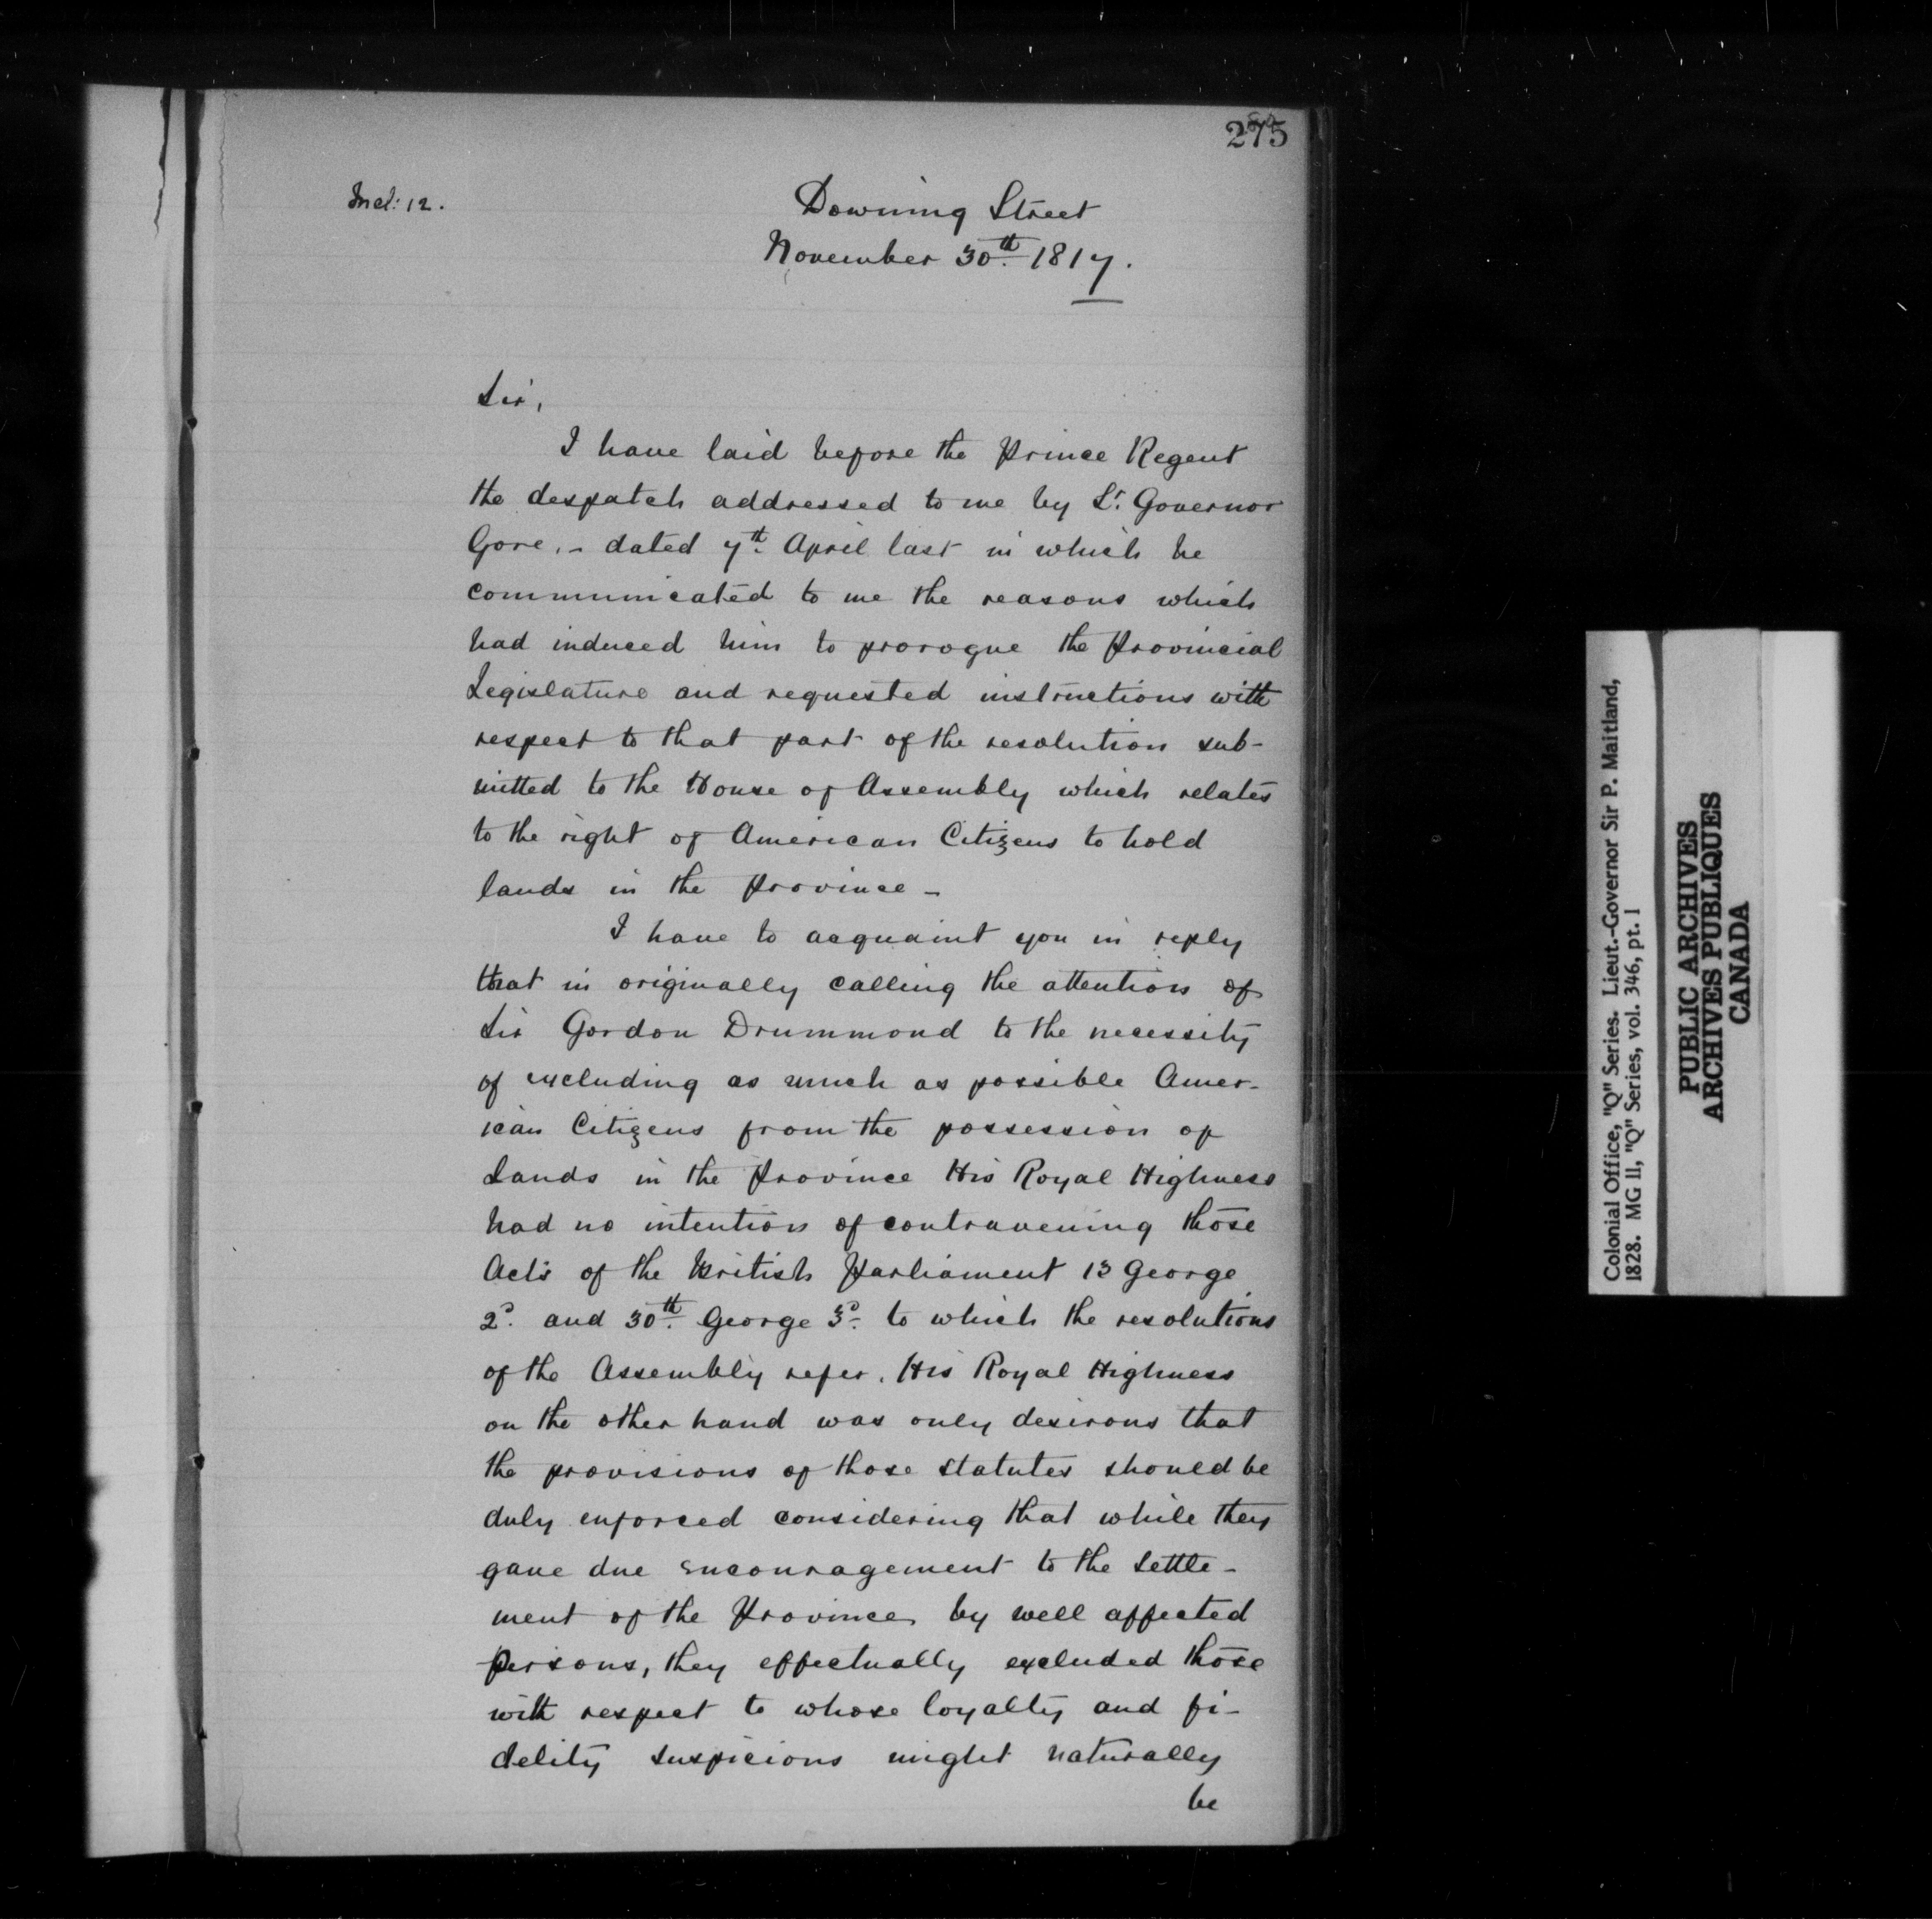 275
Incl: 12.
Downing Street
November 30th. 1817.
Sir,
I have laid before the Prince Regent
the despatch addressed to me by Lt. Governor
Gore, - dated 7th. April last in which he
communicated to me the reasons which
had induced him to prorogue the Provincial
Legislature and requested instructions with
respect to that part of the resolution sub-
mitted to the House of Assembly which relates
to the right of American Citizens to hold
lands in the Province -
I have to acquaint you in reply
that in originally calling the attention of
Sir Gordon Drummond to the necessity
of excluding as much as possible Amer-
ican Citizens from the possession of
Lands in the Province His Royal Highness
had no intention of contravening those
Acts of the British Parliament 13 George
2d. and 30th. George 3d. to which the resolutions
of the Assembly refer. His Royal Highness
on the other hand was only desirous that
the provisions of those statutes should be
duly enforced considering that while they
gave due encouragement to the settle-
ment of the Province by well affected
persons, they effectually excluded those
with respect to whose loyalty and fi-
delity suspicions might naturally
be
Colonial Office, "Q" Series. Lieut.-Governor Sir P. Maitland,
1828. MG 11, "Q" Series, vol. 346, pt. 1
PUBLIC ARCHIVES
ARCHIVES PUBLIQUES
CANADA